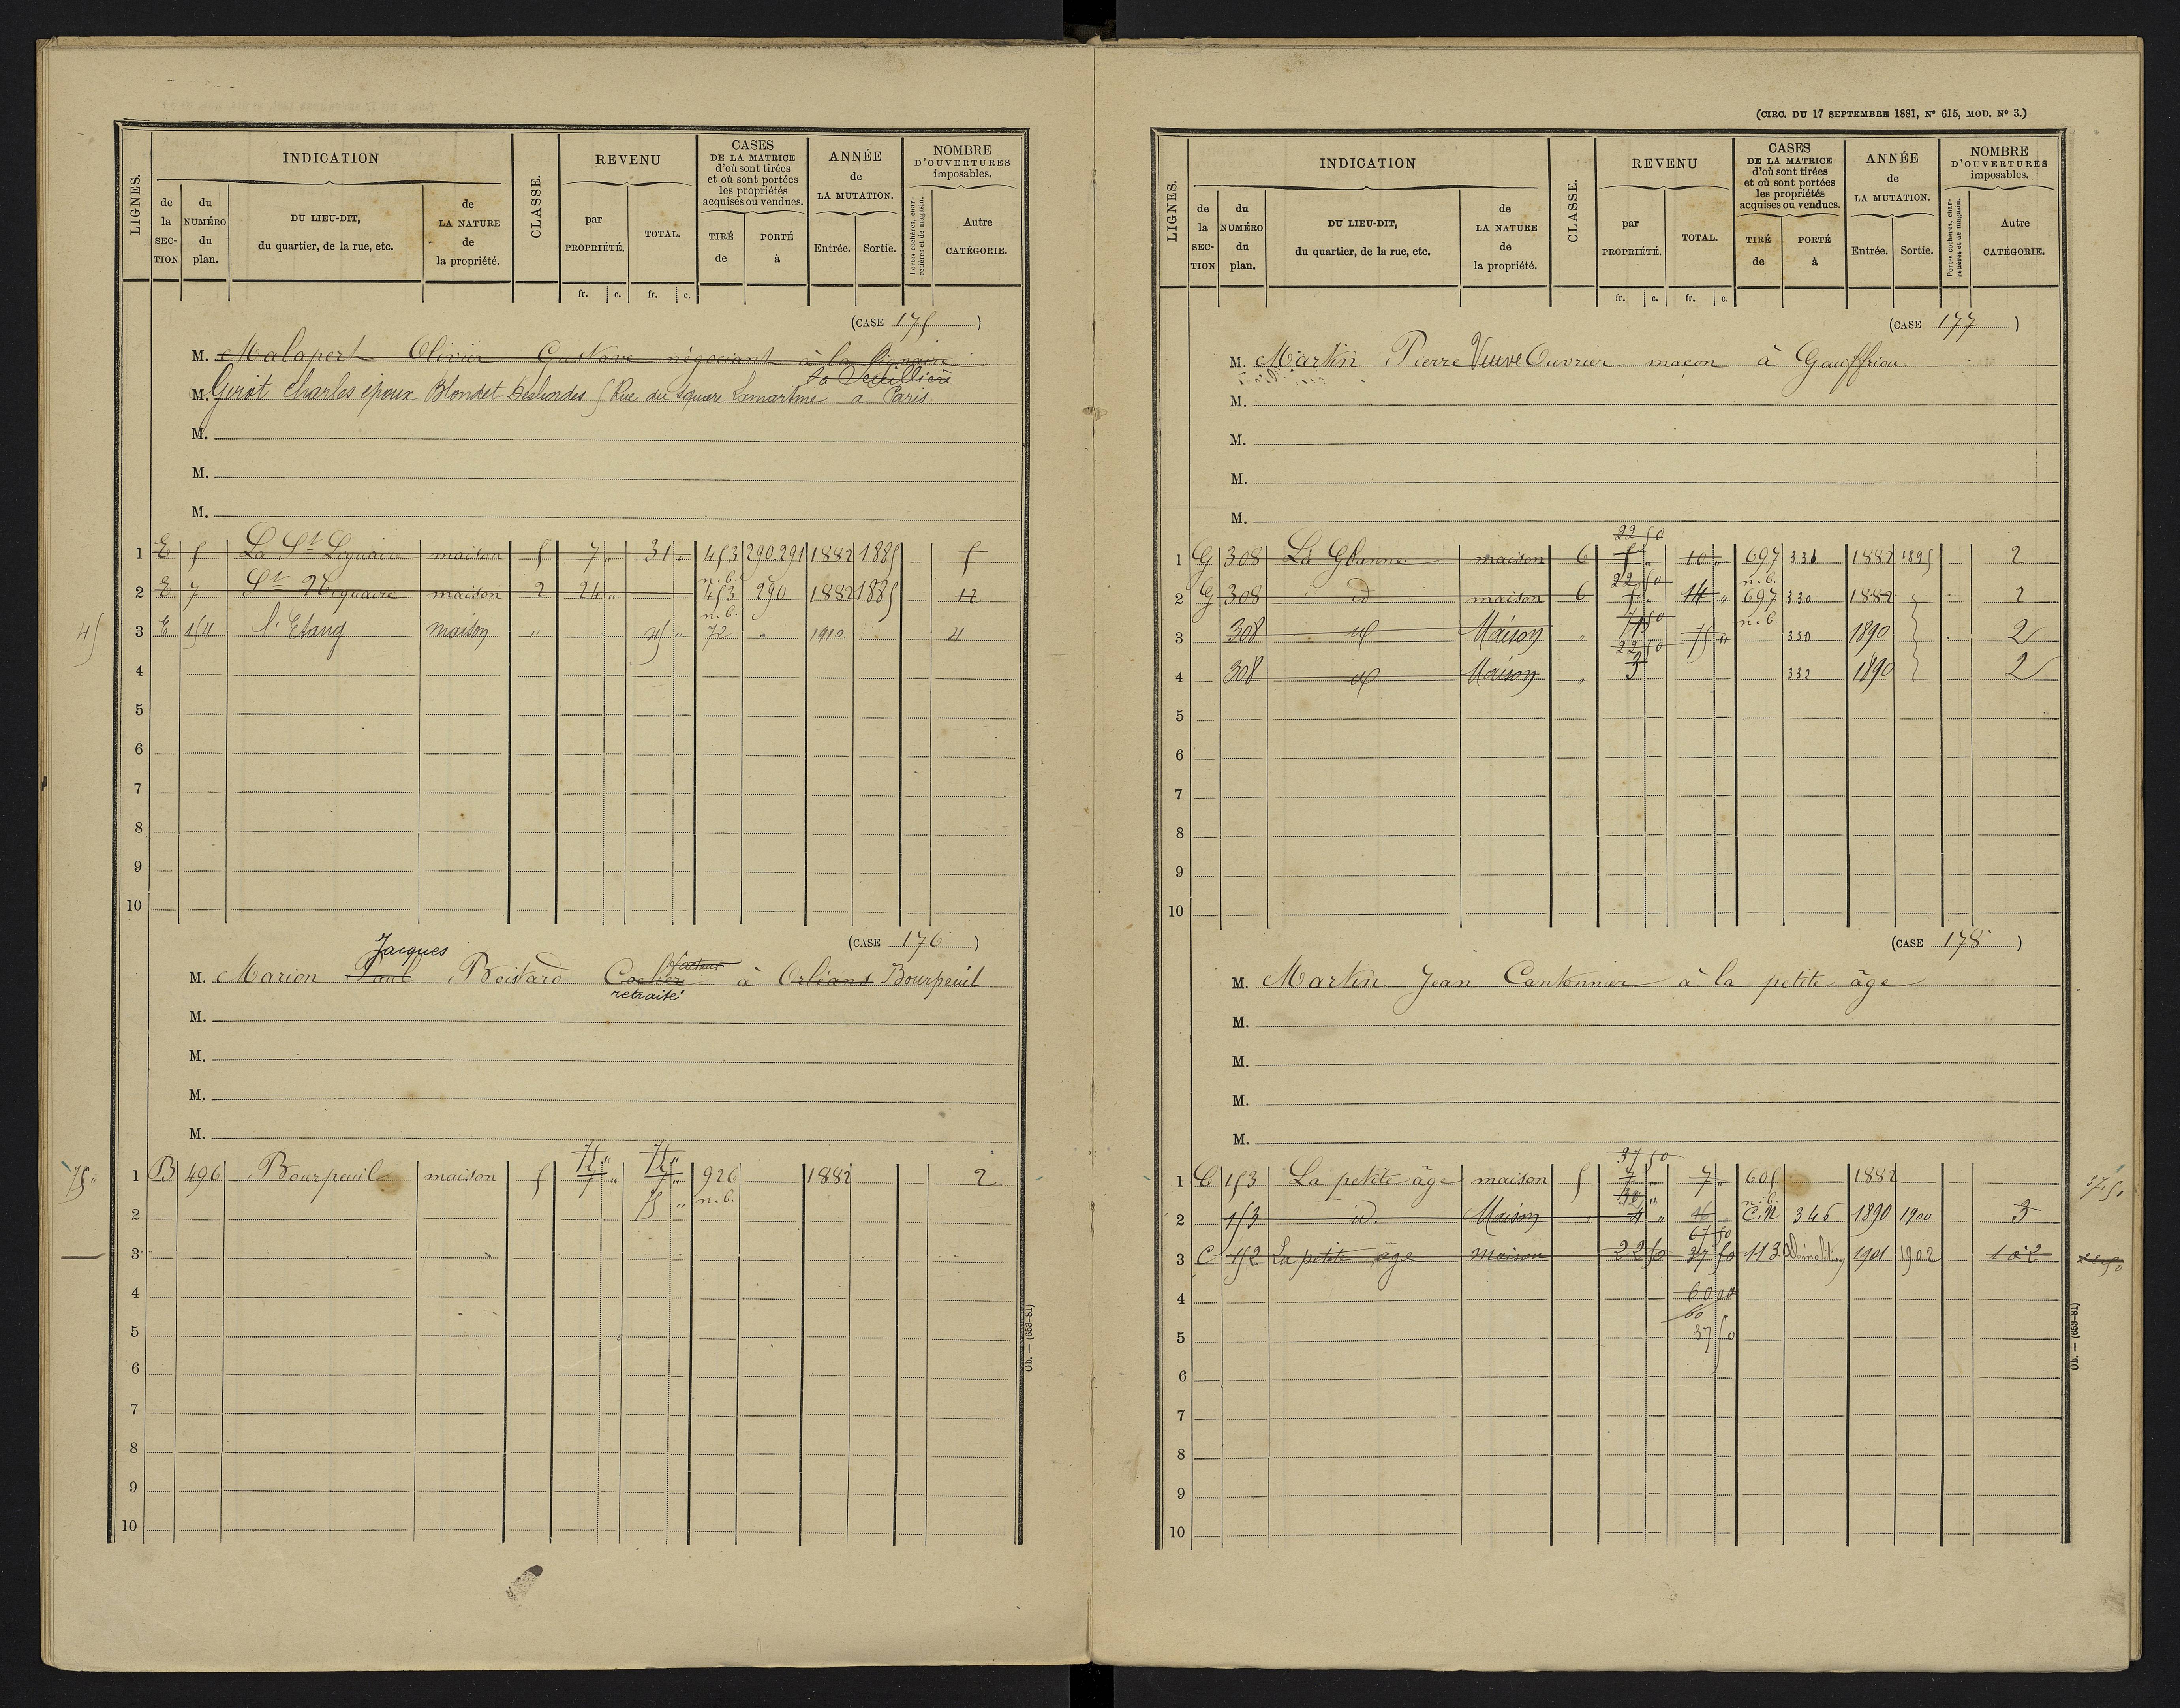 LIGNES.
INDICATION
de la SECTION
du NUMÉRO du plan.
DU LIEU-DIT, du quartier, de la rue, etc.
de LA NATURE de la propriété.
CLASSE.
REVENU
par PROPRIÉTÉ.
TOTAL.
CASES DE LA MATRICE d'où sont tirées et où sont portées les propriétés acquises ou vendues.
TIRÉ de
PORTÉ à
ANNÉE de LA MUTATION.
Entrée.
Sortie.
NOMBRE D'OUVERTURES imposables.
Portes cochères, charretières et de magasin.
Autre CATÉGORIE.
fr. c. fr. c.
(CASE 175)
M. Malapert Olivier Gustave négociant à la
M. Girot Charles époux Blondet Desbordes 5 Rue du Square Lamartine à Paris.
M.
M.
M.
1 E 5 La St Liguaire maison 5 7 " 31 " 453 290.291 1882 1885 5
n.b.
2 E 7 maison 2 24 " 453 290 1882 1885 12
n.b.
45 3 E 154 l'Etang maison " 45 " 72 " 1912 4
4
5
6
7
8
9
10
(CASE 176)
Jacques
M. Marion Paul Boistard Cocher facteur à Orléans Bourpeuil
retraité
M.
M.
M.
M.
75 " 75 "
75 " 1 B 496 Bourpeuil maison 5 7 " 7 " 926 1882 2
75 " n.b.
2
3
4
5
6
7
8
9
10
Ob. — (653-81)
(CIRC. DU 17 SEPTEMBRE 1881, N° 615, MOD. N° 3.)
LIGNES.
INDICATION
de la SECTION
du NUMÉRO du plan.
DU LIEU-DIT, du quartier, de la rue, etc.
de LA NATURE de la propriété.
CLASSE.
REVENU
par PROPRIÉTÉ.
TOTAL.
CASES DE LA MATRICE d'où sont tirées et où sont portées les propriétés acquises ou vendues.
TIRÉ de
PORTÉ à
ANNÉE de LA MUTATION.
Entrée.
Sortie.
NOMBRE D'OUVERTURES imposables.
Portes cochères, charretières et de magasin.
Autre CATÉGORIE.
fr. c. fr. c.
(CASE 177)
M. Martin Pierre Veuve Ouvrier maçon à Gauffriou
M.
M.
M.
M.
22 50
1 G 308 La Glanne maison 6 5 " 10 " 697 1882 1895 2
22 50 n.b.
2 G 308 id maison 6 5 " 14 " 697 330 1882 2
n.b.
3 308 id Maison " 75 " 330 1890 2
22 50
4 308 id Maison " 3 332 1890 2
5
6
7
8
9
10
(CASE 178)
M. Martin Jean Cantonnier à la petite âge
M.
M.
M.
M.
37 50
1 C 153 La petite âge maison 5 7 " 7 " 605 1882 37.50
30 " n.b.
2 153 id. Maison " 4 " C.N 346 1890 1900 3
67 50
3 C 152 La petite âge maison 22 50 37 50 113 Démolition 1901 1902 1 à 2
4 60 00
60
5 37 50
6
7
8
9
10
Ob. — (653-81)